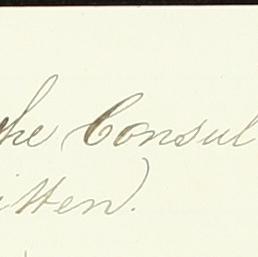 the Consul
itten).